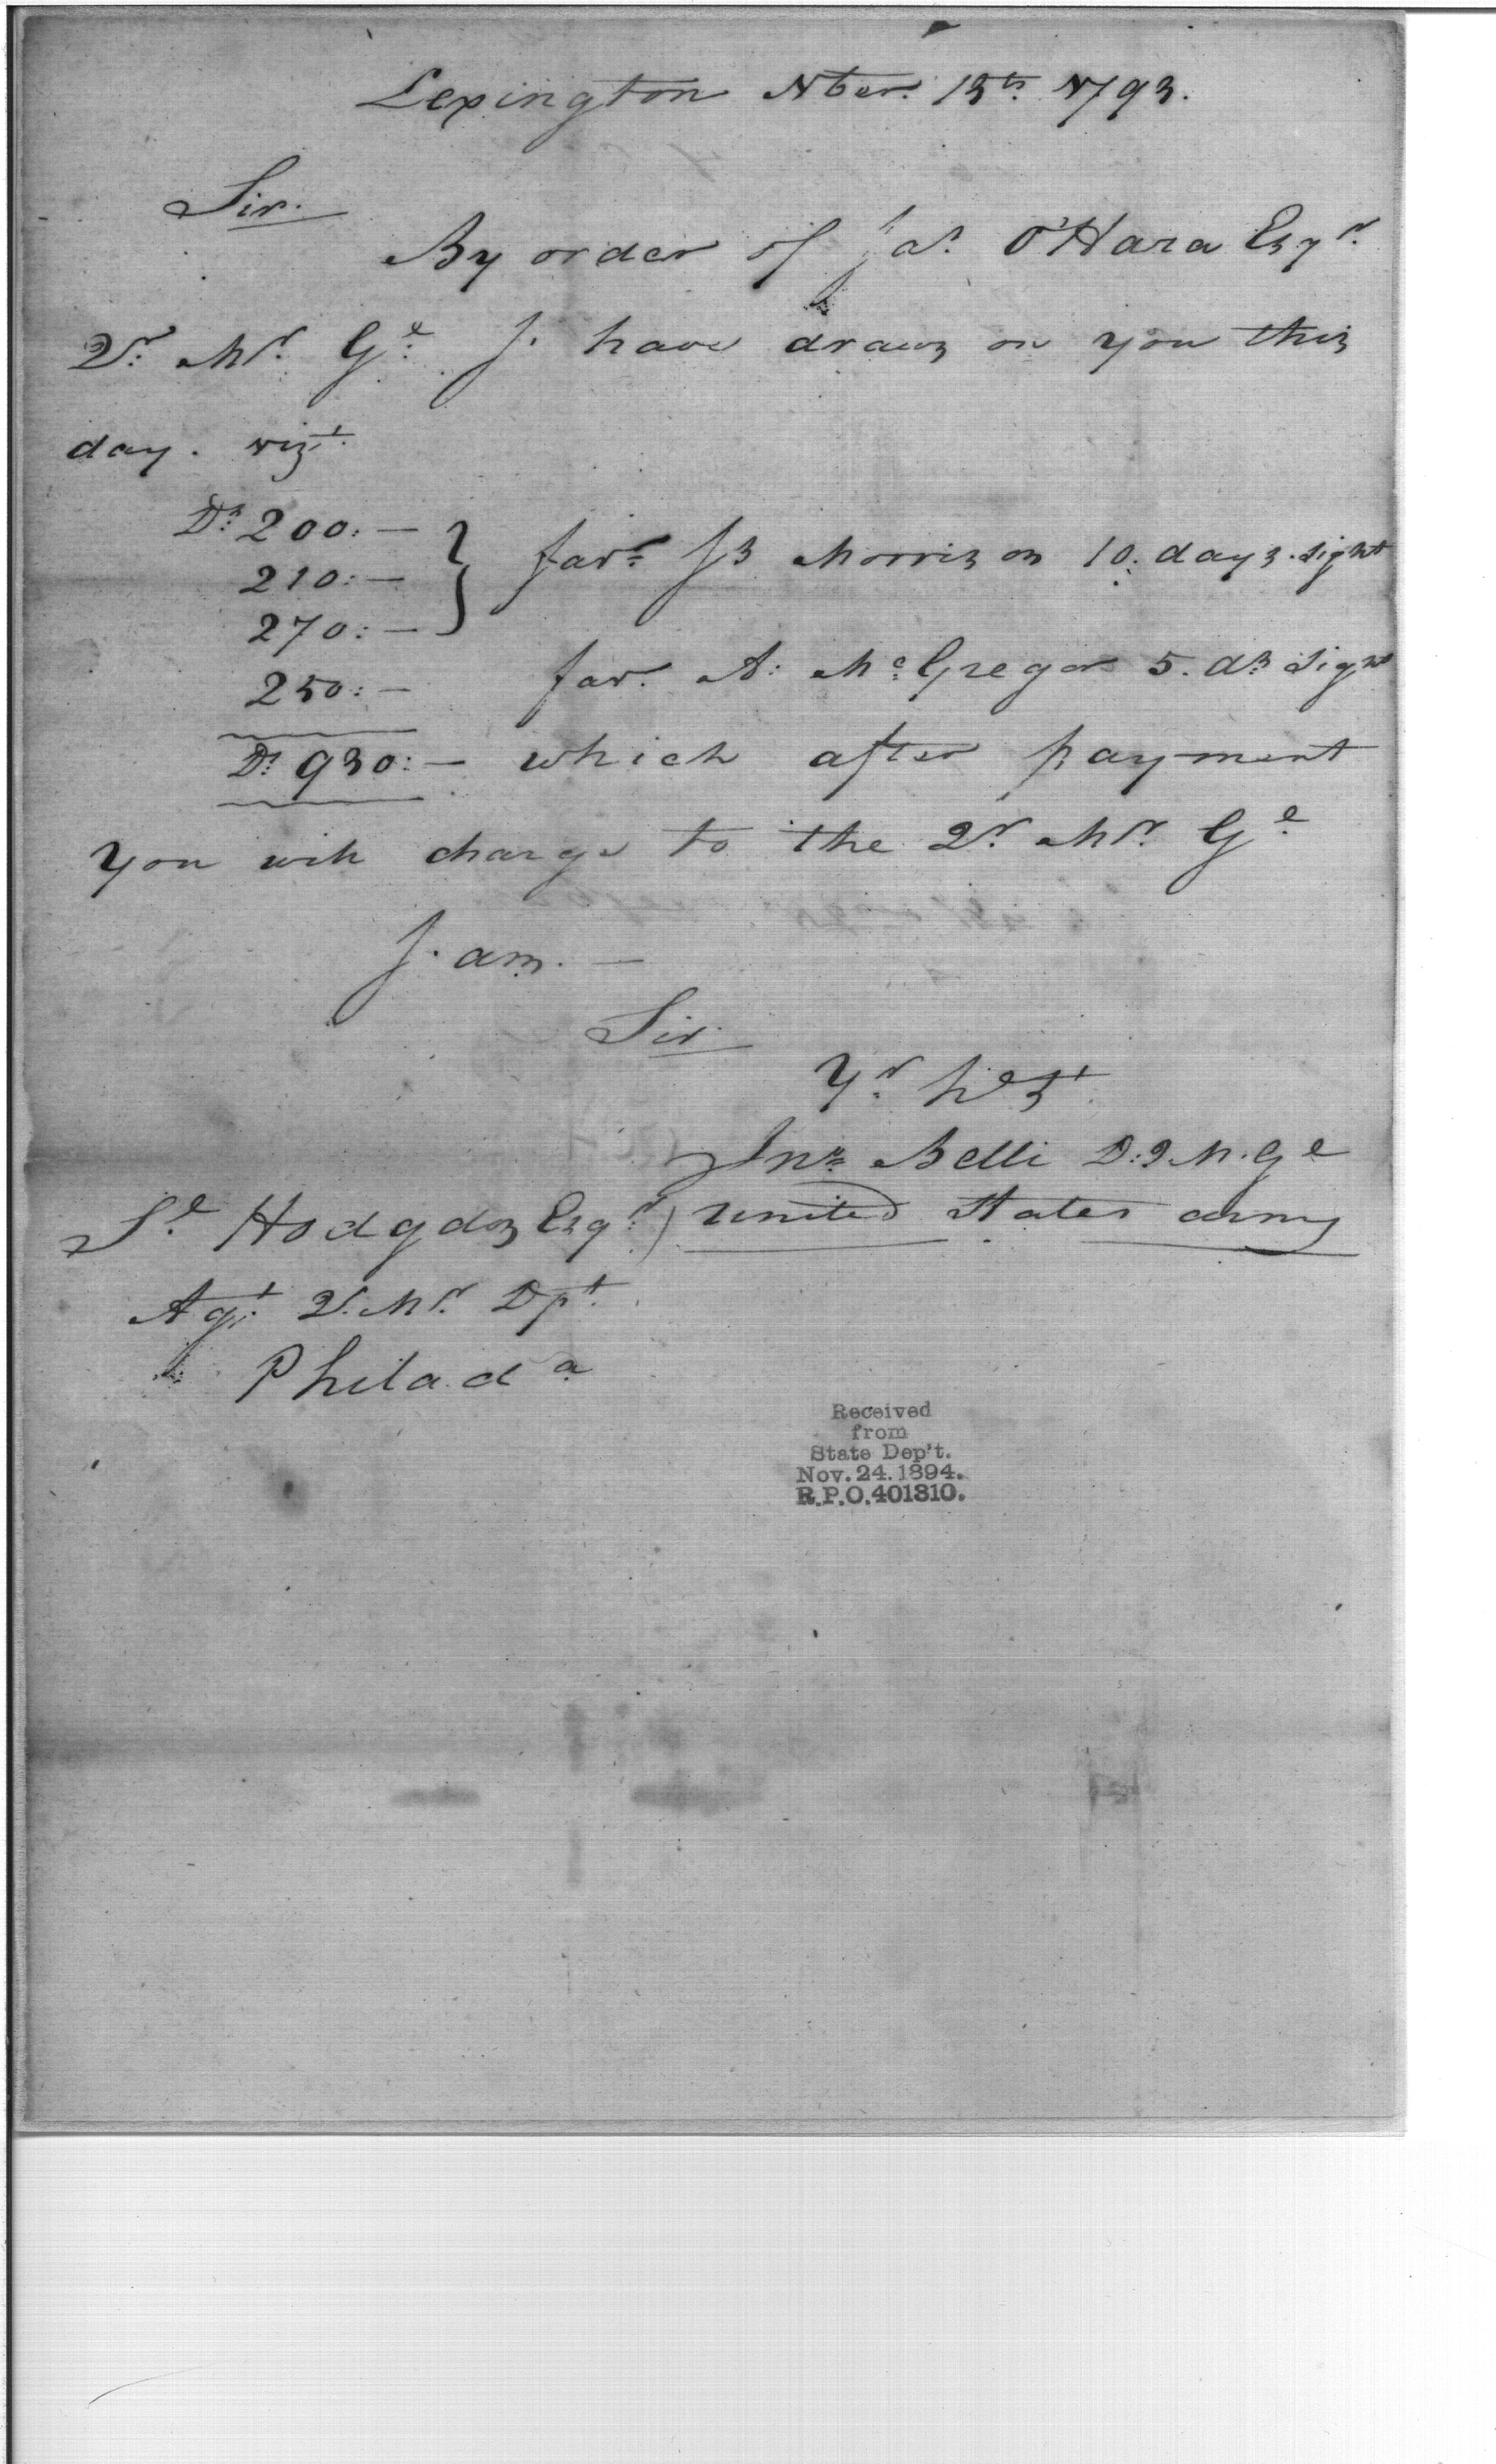 Lexington Nber. 13th. 1793.
Sir.
By order of Jas. O'Hara Esqr.
Qr. Mr. Gl. I. have drawn on you this
day. vizt.
Ds. 200:— } favr. Js Morrison 10. days. sight
210:—
270:—
250:— fav. A: McGregor 5. ds sight
Ds. 930:— which after payment
you will charge to the Qr. Mr. Gl.
I. am. —
Sir.
Yr. hbe St.
Jno. Belli D:Q.M.Gl
Sl. Hodgdon Esqr. ) United States army
Agt. Qr. Mr. Dpt.
Philada
Received
from
State Dep't.
Nov. 24. 1894.
R.P.O. 401310.